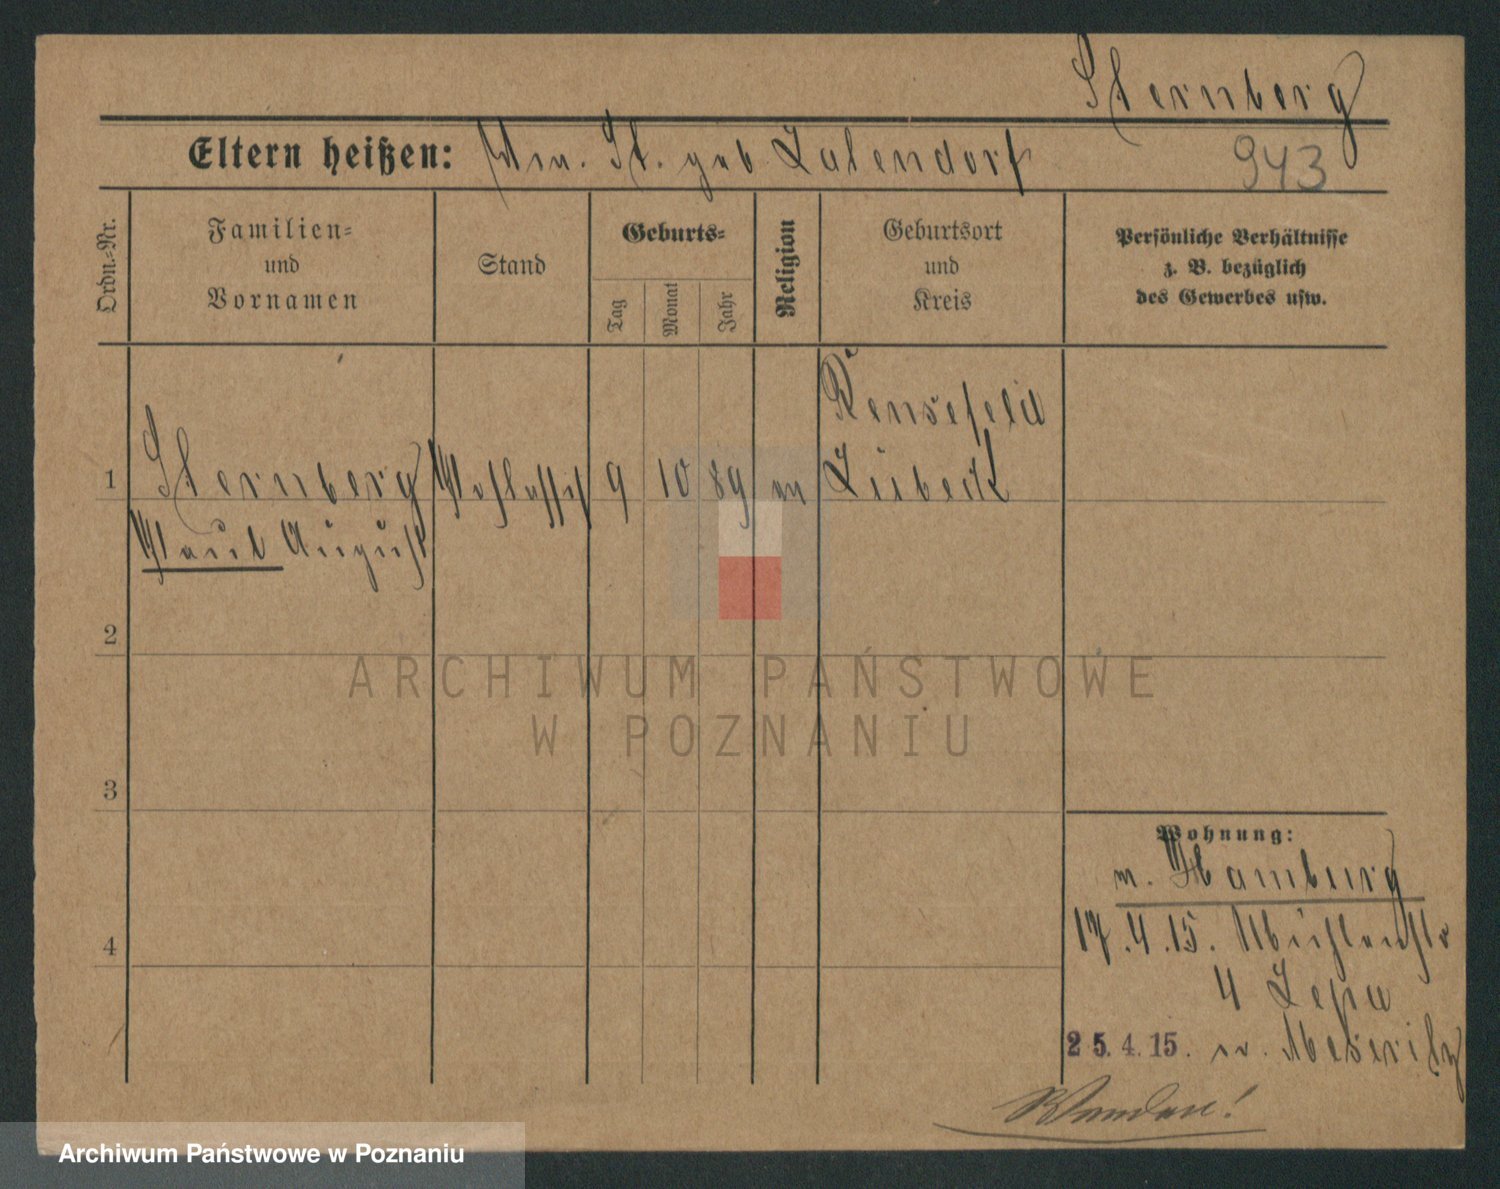 Sternberg
943
Eltern heißen: Wm. St. geb Lalendorf
Ordn.-Nr.
Familien- und Vornamen
Stand
Geburts-
Tag
Monat
Jahr
Religion
Geburtsort und Kreis
Persönliche Verhältnisse
z. B. bezüglich
des Gewerbes usw.
1
Sternberg
9 10 89
Rensefeld
Lübeck
Paul August
2
3
4
Wohnung:
Hamburg
17.4.15. Mühlenstr
4
25.4.15. Meseritz
Wenden!
ARCHIWUM PAŃSTWOWE
W POZNANIU
Archiwum Państwowe w Poznaniu